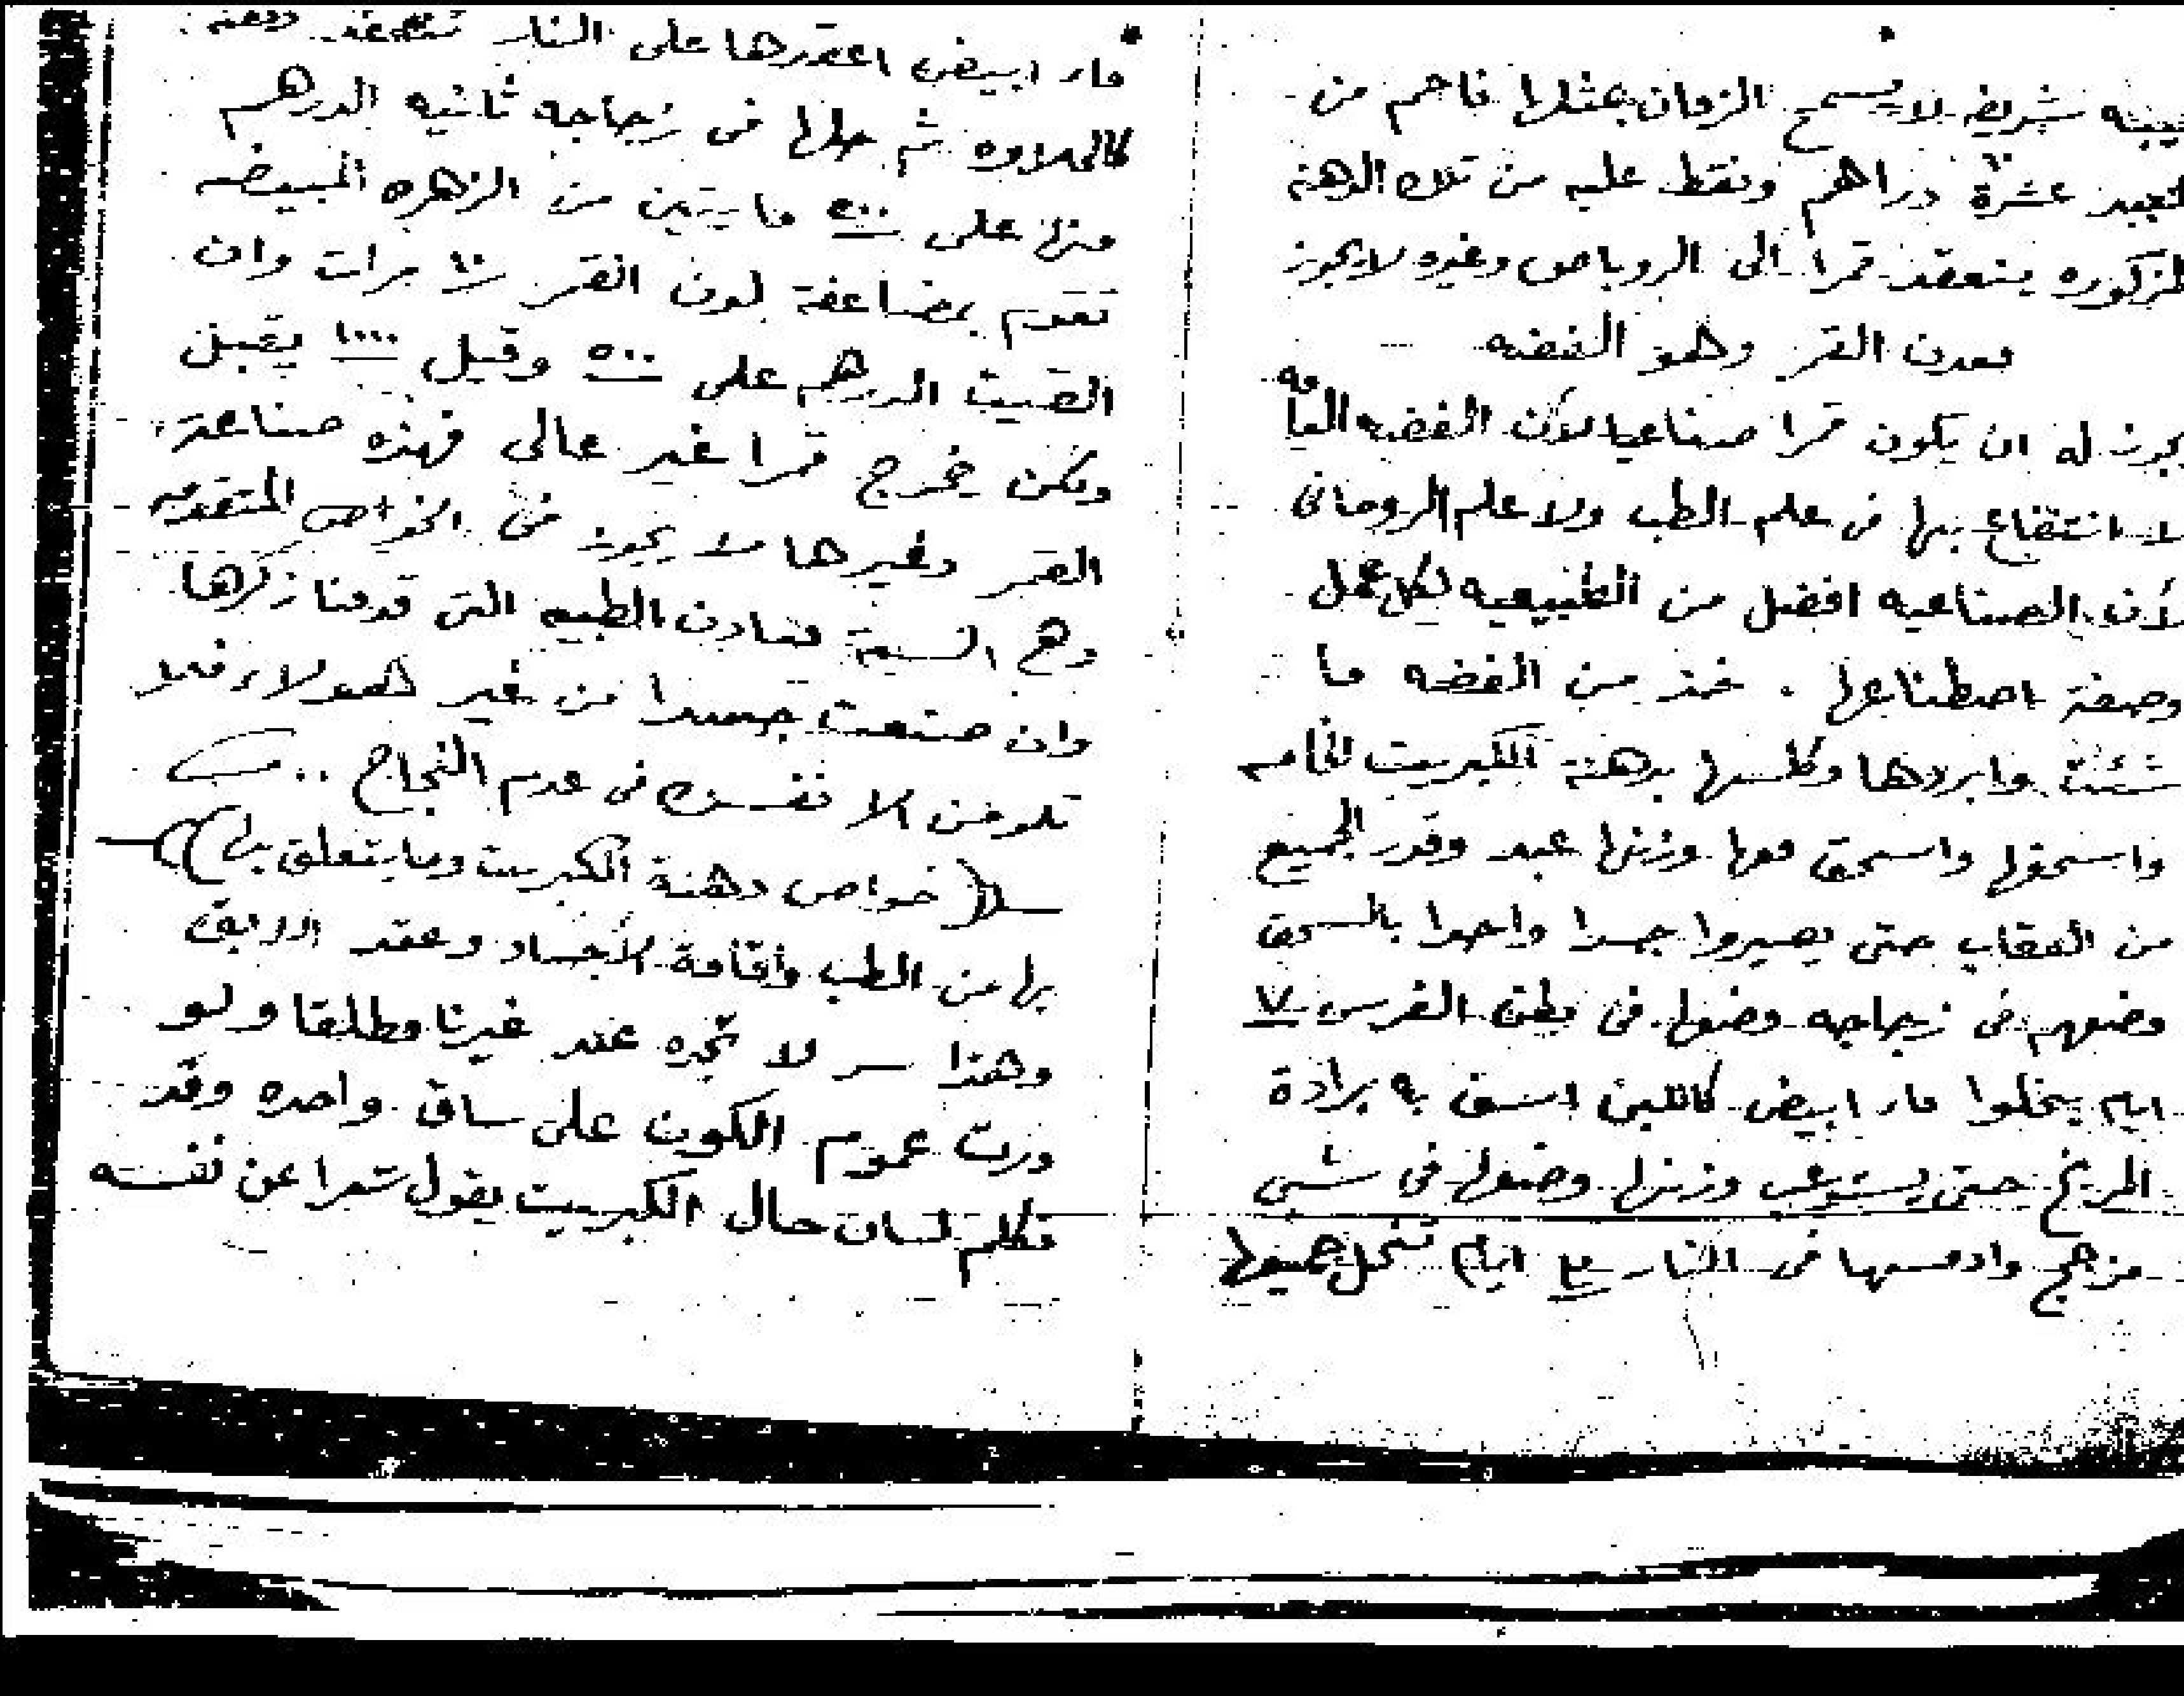 شريفه لا يسمح الزمان بمثلها فاحم من
العبد عشرة دراهم ونقط عليه من تلك الدهنة
المذكوره ينعقد قمرا الى الروباص وغيره لا يجوز
معدن القمر وهو الفضه
يجوز له ان يكون قمرا صناعيا لأن الفضه العامه
لا انتفاع بها فى علم الطب ولا علم الروحانى
لأن الصناعيه افضل من الطبيعيه لكل عمل
وصفة اصطناعها . خذ من الفضه ما
شئت وابردها وكلسها بدهنة الكبريت الخاصه
واسحقها واسحق معها وزنها عبد وقدر الجميع
من العقاب حتى يصيروا جسدا واحدا بالسحق
وضعهم فى زجاجه وضعها فى بطن الفرس ٧
ايام ينحلوا ماء ابيض كاللبن اسق به برادة
المريخ حتى يستوعب وزنها وضعها فى شىء
مزجج وادمسها فى النار ايام تنحل جميعها
ماء ابيض اعقدها على النار تنعقد دهنه
كالحلاوه ثم حلها فى زجاجه ثانيه الدرهم
منها على ٢٠٠ مايتين من الزهره المبيضه
تقوم بمضاعفة لون القمر ١٠ مرات وان
القيت الدرهم على ٥٠٠ وقيل ١٠٠٠ يقبل
ولكن يخرج قمرا غير عالى فهذه صناعة
القمر وغيرها لا يجوز فى الخواص المتقدمه
وهى السبعة معادن الطبيه التى قدمنا زكرها
وان صنعت جسدا من غير هولاء فلا
تلومن الا نفسك فى عدم النجاح ..
(( خواص دهنة الكبريت وما يتعلق بها ))
بها من الطب وأقامة الأجساد وعقد الابق
وهذا سر لا تجده عند غيرنا مطلقا ولو
درت عموم الكون على ساق واحده وقد
تكلم لسان حال الكبريت يقول شعرا عن نفسه